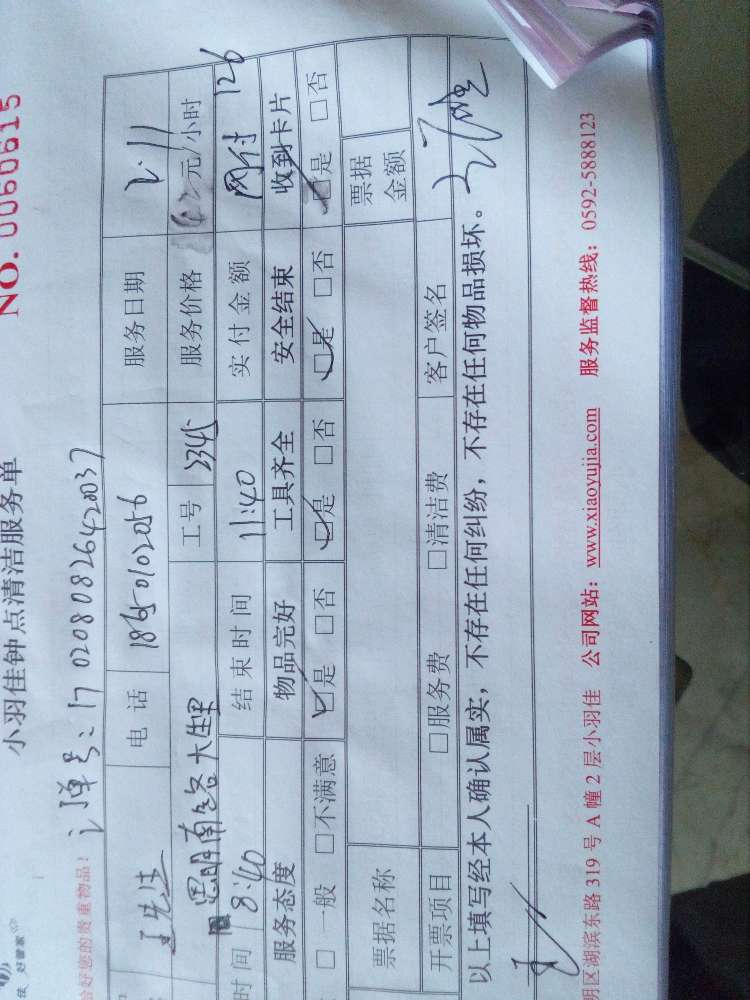 小羽佳钟点清洁服务单 NO. 0060615
好管家
给好您的贵重物品！ 订单号：1702080826420037
王先生 电话 18650102056 服务日期 2.11
思明南路大生里 工号 2345 服务价格 42元/小时
时间 8:40 结束时间 11:40 实付金额 网付 126
服务态度 物品完好 工具齐全 安全结束 收到卡片
般 □不满意 □是 □否 □是 □否 □是 □否 □是 □否
票据名称 票据金额
开票项目 □服务费 □清洁费 客户签名
以上填写经本人确认属实，不存在任何纠纷，不存在任何物品损坏。
明区湖滨东路 319 号 A 幢 2 层小羽佳 公司网站：www.xiaoyujia.com 服务监督热线：0592-5888123